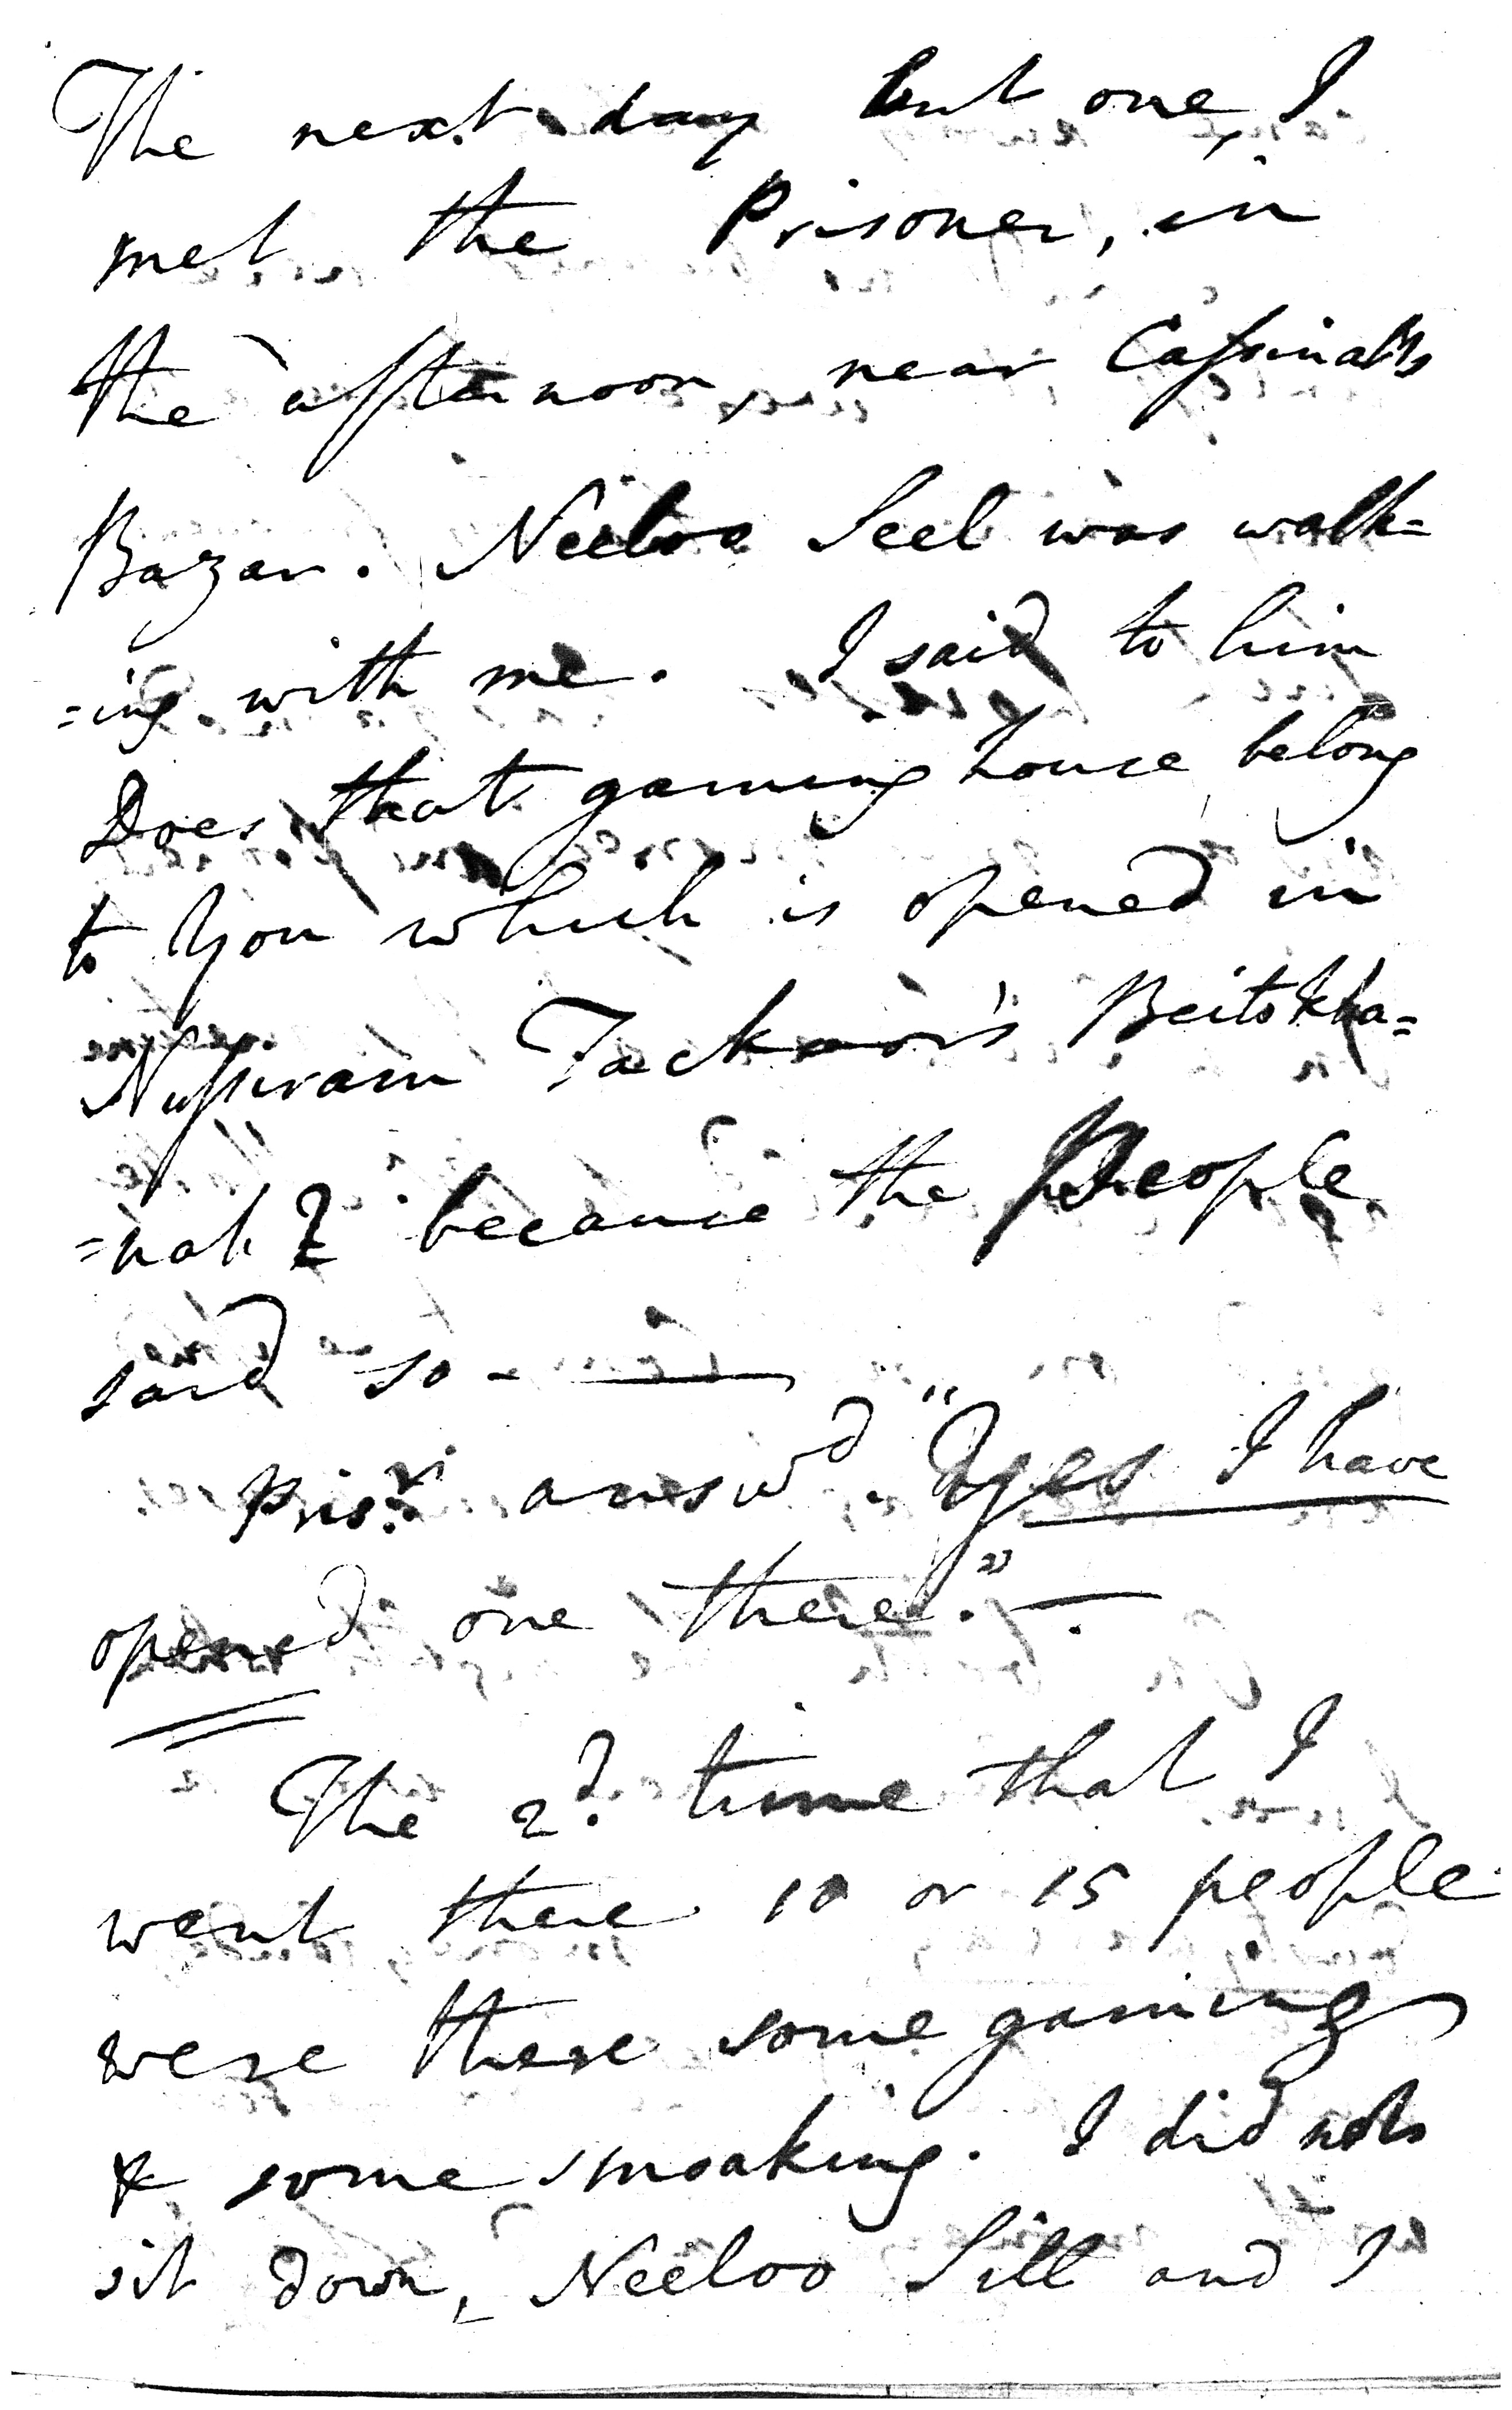 The next day but one I
met the Prisoner, in
the afternoon near Cassinath's
Bazar. Neeloo Seel was walk=
=ing with me. I said to him
Does that gaming house belong
to You which is opened in
Nussiram Tackoor's Beitskha=
=nah? because the People
said so -
Pris.r answ'd "Yes I have
opened one there." -
The 2d. time that I
went there 10 or 15 people
were there some gaming
& some smoaking. I did not
sit down, Neeloo Sill and I